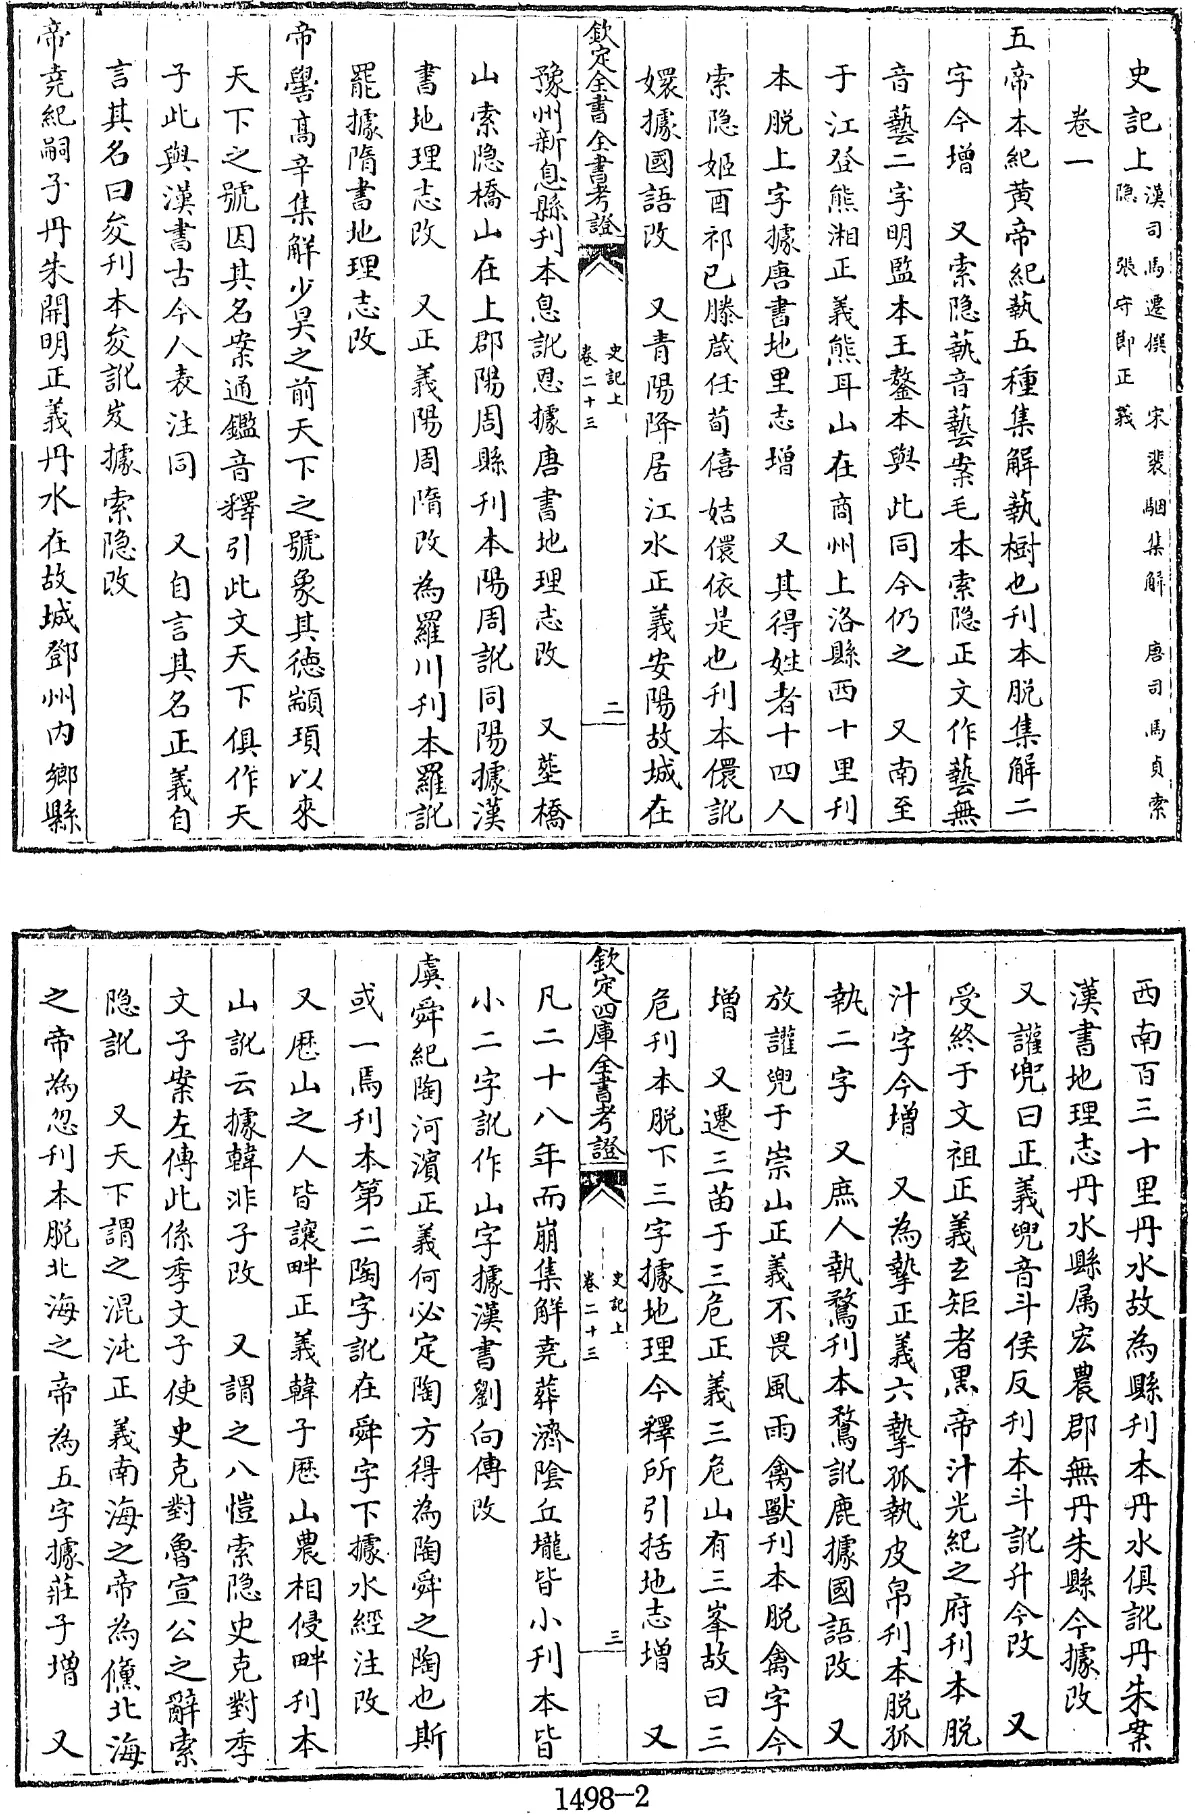 史記上漢司馬遷撰 宋裴駰集解 唐司馬貞索
隐 張守節正義
卷一
五帝本紀黄帝紀執五種集解執樹也刊本脱集解二
字今增 又索隐執音藝案毛本索隐正文作藝無
音藝二字明監本王鏊本與此同今仍之 又南至
于江登熊湘正義熊耳山在商州上洛縣西十里刊
本脱上字據唐書地里志增 又其得姓者十四人
索隐姬酉祁已滕葴任荀僖姞儇依是也刊本儇訛
嬛據國語改 又青陽降居江水正義安陽故城在
欽定全書全書考證 史記上
卷二十三 二
豫州新息縣刊本息訛恩據唐書地理志改 又塟橋
山索隐橋山在上郡陽周縣刊本陽周訛同陽據漢
書地理志改 又正義陽周隋改為羅川刊本羅訛
罷據隋書地理志改
帝嚳髙辛集解少昊之前天下之號象其徳顓頊以來
天下之號因其名案通鑑音釋引此文天下俱作天
子此與漢書古今人表注同 又自言其名正義自
言其名曰夋刊本夋訛岌據索隐改
帝堯紀嗣子丹朱開明正義丹水在故城鄧州内鄉縣
西南百三十里丹水故為縣刊本丹水俱訛丹朱案
漢書地理志丹水縣属宏農郡無丹朱縣今據改
又讙兜曰正義兜音斗侯反刊本斗訛升今改 又
受終于文祖正義玄矩者黒帝汁光紀之府刊本脱
汁字今增 又為摯正義六摯孤執皮帛刊本脱孤
執二字 又庶人執鶩刊本鶩訛鹿據國語改 又
放讙兜于崇山正義不畏風雨禽獸刊本脱禽字今
增 又遷三苗于三危正義三危山有三峯故曰三
危刊本脱下三字據地理今釋所引括地志增 又
欽定四庫全書考證 史記上
卷二十三 三
凡二十八年而崩集解堯葬濟陰丘壠皆小刊本皆
小二字訛作山字據漢書劉向傳改
虞舜紀陶河濵正義何必定陶方得為陶舜之陶也斯
或一焉刊本第二陶字訛在舜字下據水經注改
又歷山之人皆讓畔正義韓子歷山農相侵畔刊本
山訛云據韓非子改 又謂之八愷索隐史克對季
文子案左傳此係季文子使史克對魯宣公之辭索
隐訛 又天下謂之混沌正義南海之帝為儵北海
之帝為忽刊本脱北海之帝為五字據莊子增 又
1498-2